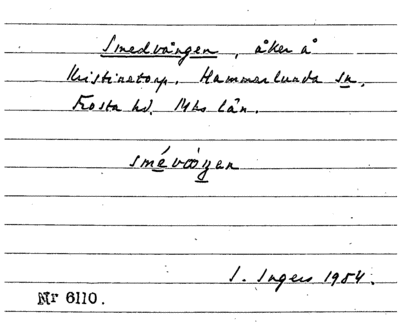 Smedvången, åker å
Kristinetorp. Hammarlunda sn,
Frosta hd. Mhs län.
smévåŋen
I. Ingers 1954.
Nr 6110.